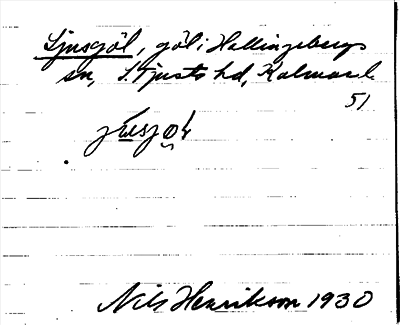 Ljusgöl, göl i Hallingebergs
sn, S. Tjusts hd, Kalmar l.
51
Nils Henrikson 1930